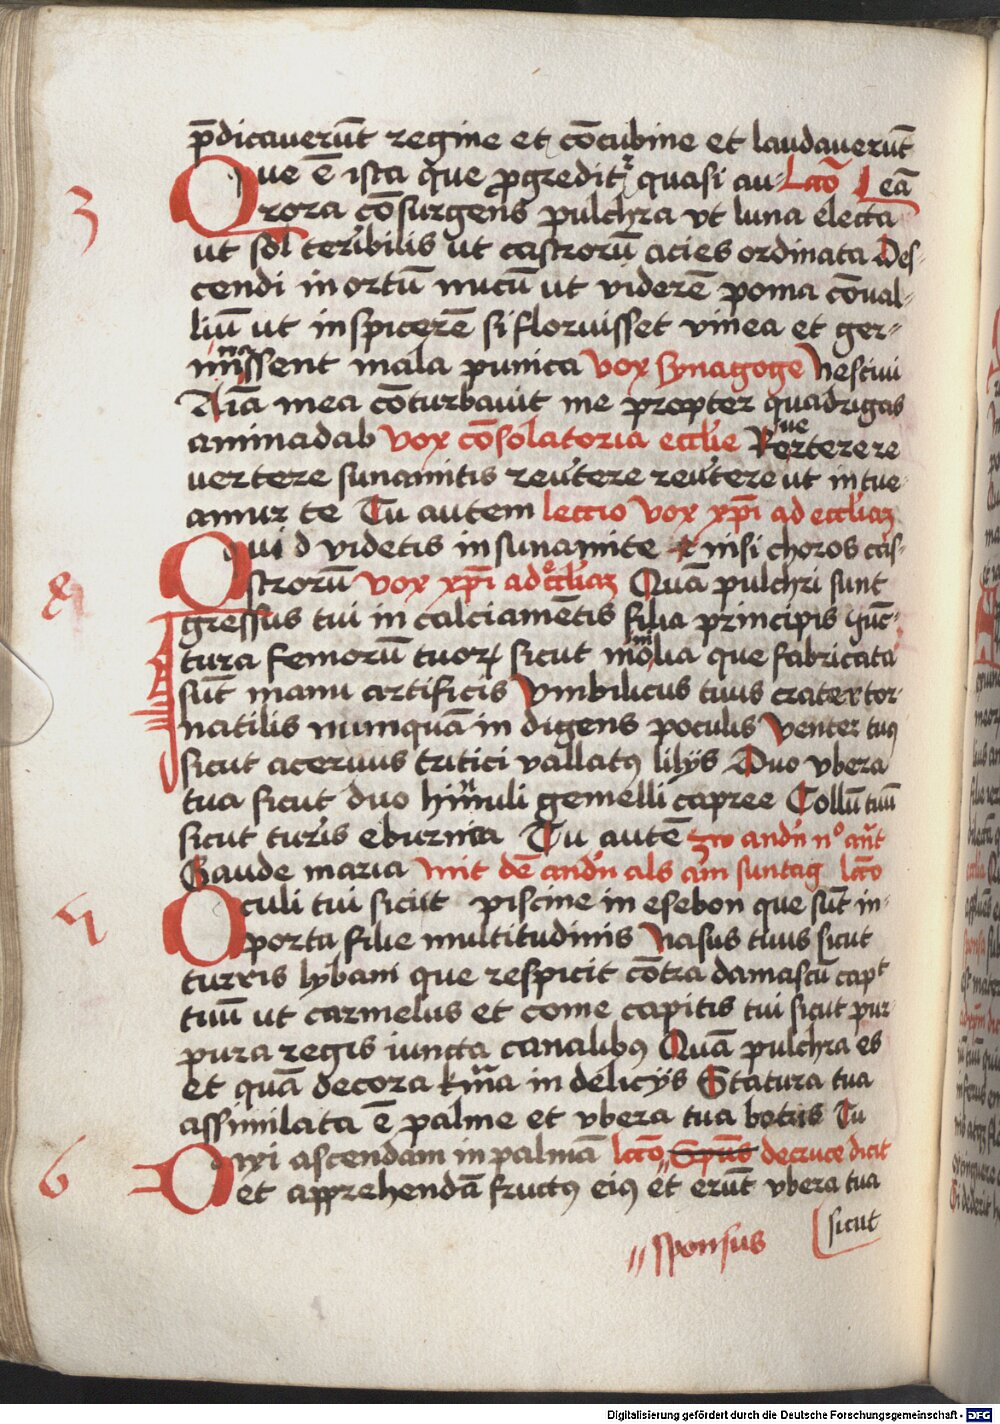 p̄dicauerūt regine et cōcubine et laudauerūt
Que ē ista que p̱gredit quasi au- Lcō Leā
3
rora cōsurgens pulchra vt luna electa
ut sol teribilis ut castrorū acies ordinata Des-
cendi in ortū nucū ut viderē poma cōual-
liū ut inspicerē si floruisset vinea et ger-
minassent mala punica vox synagoge Nesciui
Aīa mea cōturbauit me propter quadrigas
aminadab vox cōsolatoria eccl'ie Reuertere re
uertere sunamitis reu'tere reu'tere ut intue
amur te Tu autem lectio vox xp̄i ad eccl'iaʒ
Quid videtis in sunamite nisi choros cas-
4
strorū vox xp̄i ad eccl'iaʒ Quā pulchri sunt
gressus tui in calciamētis filia principis Iūc-
tura femorū tuoꝝ sicut monilia que fabricata
sūt manu artificis Vmbilicus tuus crater tor-
natilis nunquā indigens poculis Venter tuꝯ
sicut aceruus tritici vallatꝯ lilijs Duo vbera
tua sicut duo hinnuli gemelli capree Collū tuū
sicut turis eburnea Tu autē
Gaude maria
Oculi tui sicut piscine in esebon que sūt in
5
porta filie multitudinis Nasus tuus sicut
turris lybani que respicit cōtra damascū capt
tuū ut carmelus et come capitis tui sicut pur-
pura regis iuncta canalibꝯ Quā pulchra es
et quā decora k'ma in delicijs Statura tua
assimilata ē palme et vbera tua botris Tu
Dixi ascendam in palmā lcō Spūs de cruce dicit
6
et apprehendā fructꝯ eiꝯ et erūt vbera tua
sicut
sponsus
Digitalisierung gefördert durch die Deutsche Forschungsgemeinschaft - DFG